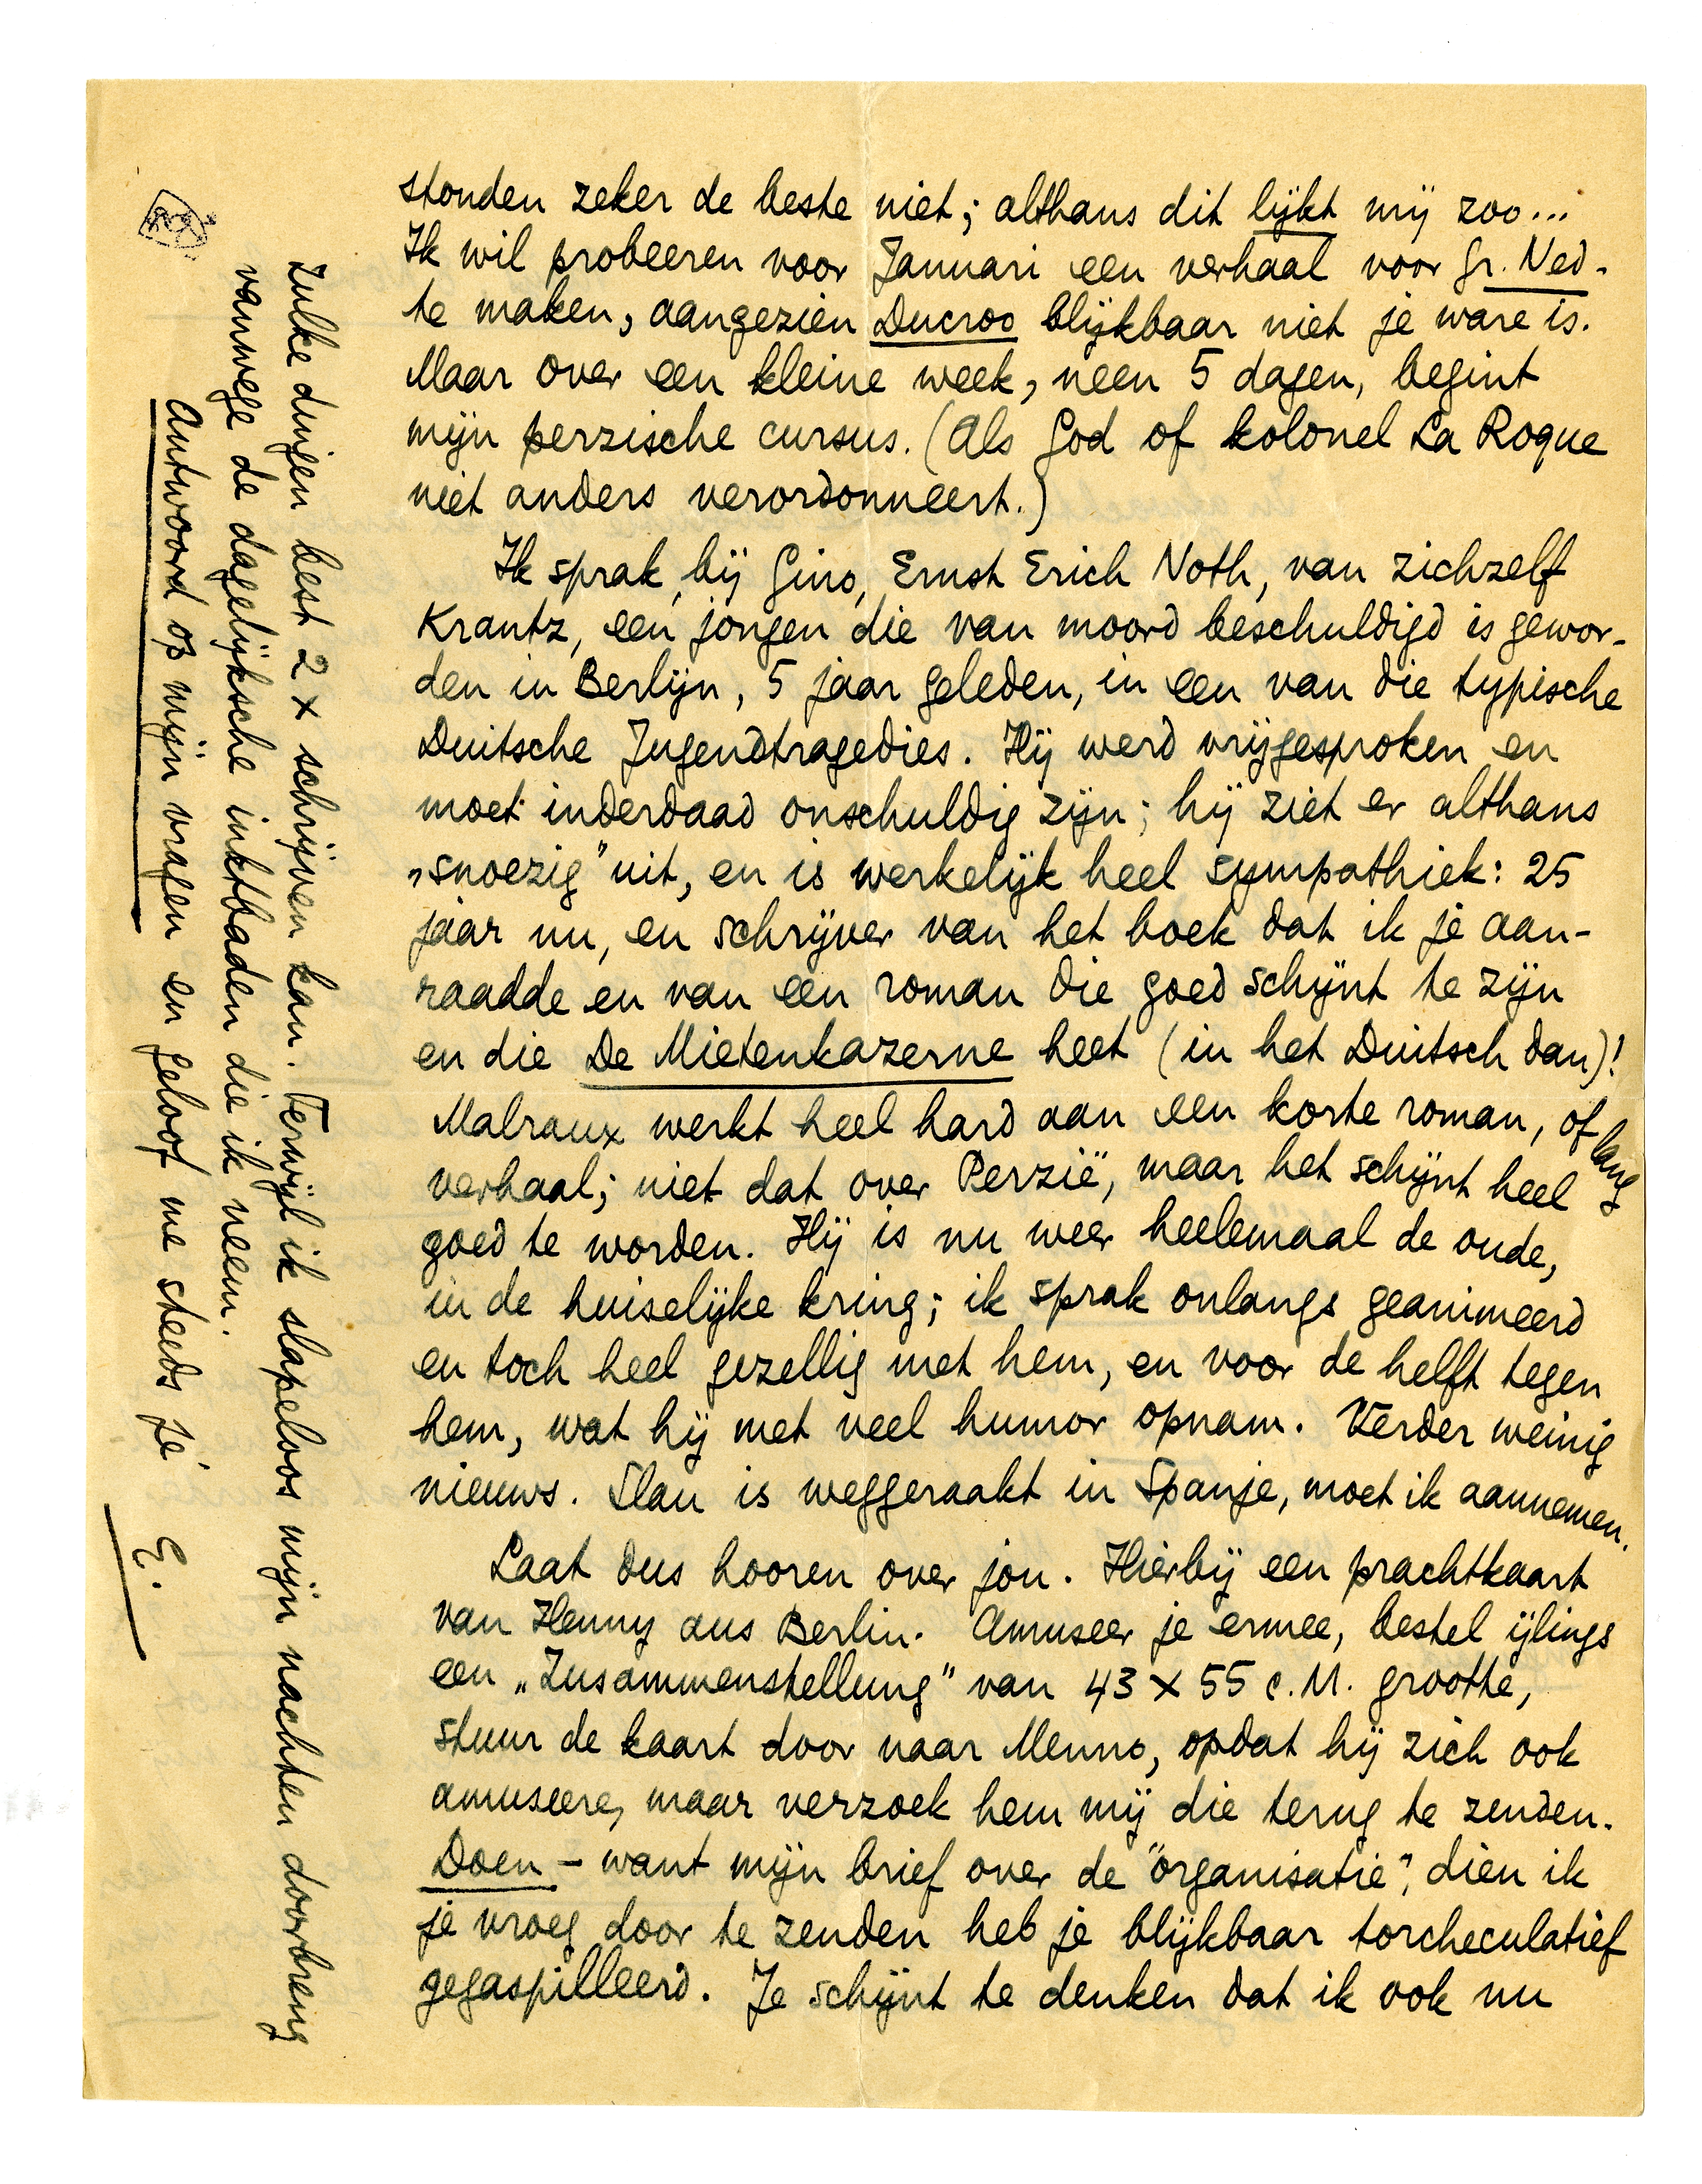 stonden zeker de beste niet; althans dit lijkt mij zoo...
Ik wil probeeren voor Januari een verhaal voor Gr. Ned.
te maken, aangezien Ducroo blijkbaar niet je ware is.
Maar over een kleine week, neen 5 dagen, begint
mijn perzische cursus. (Als God of kolonel La Roque
niet anders verordonneert.)
Ik sprak, bij Gino, Ernst Erich Noth, van zichzelf
Krantz, een jongen die van moord beschuldigd is gewor-
den in Berlijn, 5 jaar geleden, in een van die typische
Duitsche Jugendtragedies. Hij werd vrijgesproken en
moet inderdaad onschuldig zijn; hij ziet er althans
„snoezig” uit, en is werkelijk heel sympathiek: 25
jaar nu, en schrijver van het boek dat ik je aan-
raadde en van een roman die goed schijnt te zijn
en die De Mietenkazerne heet (in het Duitsch dan)!
Malraux werkt heel hard aan een korte roman, of lang
verhaal; niet dat over Perzië, maar het schijnt heel
goed te worden. Hij is nu weer heelemaal de oude,
in de huiselijke kring; ik sprak onlangs geanimeerd
en toch heel gezellig met hem, en voor de helft tegen
hem, wat hij met veel humor opnam. Verder weinig
nieuws. Slau is weggeraakt in Spanje, moet ik aannemen.
Laat dus hooren over jou. Hierbij een prachtkaart
van Henny aus Berlin. Amuseer je ermee, bestel ijlings
een „Zusammenstellung” van 43 x 55 c.M. grootte,
stuur de kaart door naar Menno, opdat hij zich ook
amuseere, maar verzoek hem mij die terug te zenden.
Doen – want mijn brief over de “organisatie”, dien ik
je vroeg door te zenden heb je blijkbaar torcheculatief
gegaspilleerd. Je schijnt te denken dat ik ook nu
zulke dingen best 2 x schrijven kan. Terwijl ik slapeloos mijn nachten doorbreng
vanwege de dagelijksche inktbaden die ik neem.
Antwoord op mijn vragen en geloof me steeds je
E.